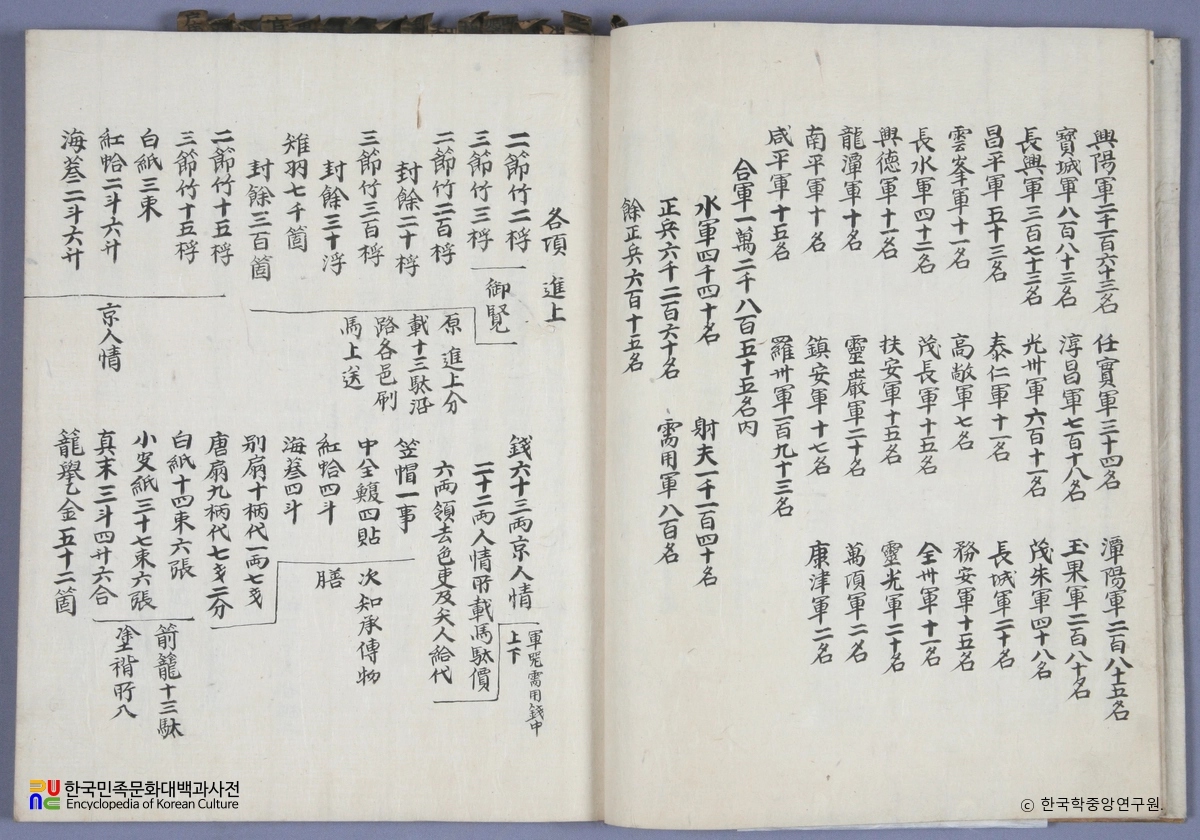 興陽軍二千一百六十三名 任實軍三十四名 潭陽軍二百八十五名
寶城軍八百八十三名 淳昌軍七百十八名 玉果軍二百八十名
長興軍三百七十三名 光州軍六百十一名 茂朱軍四十八名
昌平軍五十三名 泰仁軍十一名 長城軍二十名
雲峯軍十一名 高敞軍七名 務安軍十五名
長水軍四十二名 茂長軍十五名 全州軍十一名
興德軍十一名 扶安軍十五名 靈光軍二十名
龍潭軍十名 靈巖軍二十名 萬頃軍二名
南平軍十名 鎮安軍十七名 康津軍二名
咸平軍十五名 羅州軍一百九十三名
合軍一萬二千八百五十五名內
水軍四千四十名 射夫一千一百四十名
正兵六千二百六十名 需用軍八百名
餘正兵六百十五名
各項 進上
二節竹二桴
三節竹三桴
御覽
二節竹二百桴
封餘二十桴
三節竹三百桴
封餘三十浮
雉羽七千箇
封餘三百箇
原 進上分
載十三駄沿
路各邑刷
馬上送
二節竹十五桴
三節竹十五桴
白紙三束
紅蛤二斗六升
海蔘二斗六升
京人情
錢六十三兩京人情
二十二兩人情所載馬駄價
六兩領去色吏及矢人給代
軍器需用錢中
上下
笠帽一事
中全鰒四貼
紅蛤四斗
海蔘四斗
次知承傳物
膳
別扇十柄代一兩七戔
唐扇九柄代七戔二分
白紙十四束六張
小妛紙三十七束六張
真末三斗四升六合
籠擧乙金五十二箇
箭籠十三駄
塗褙所入
한국민족문화대백과사전
Encyclopedia of Korean Culture
© 한국학중앙연구원.